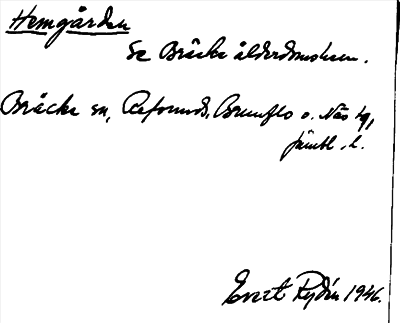 Hemgården
Se Bräcke ålderdomshem.
Bräcke sn, Refsunds, Brunflo o. Näs tg,
Jämtl. l.
Evert Rydén 1946.